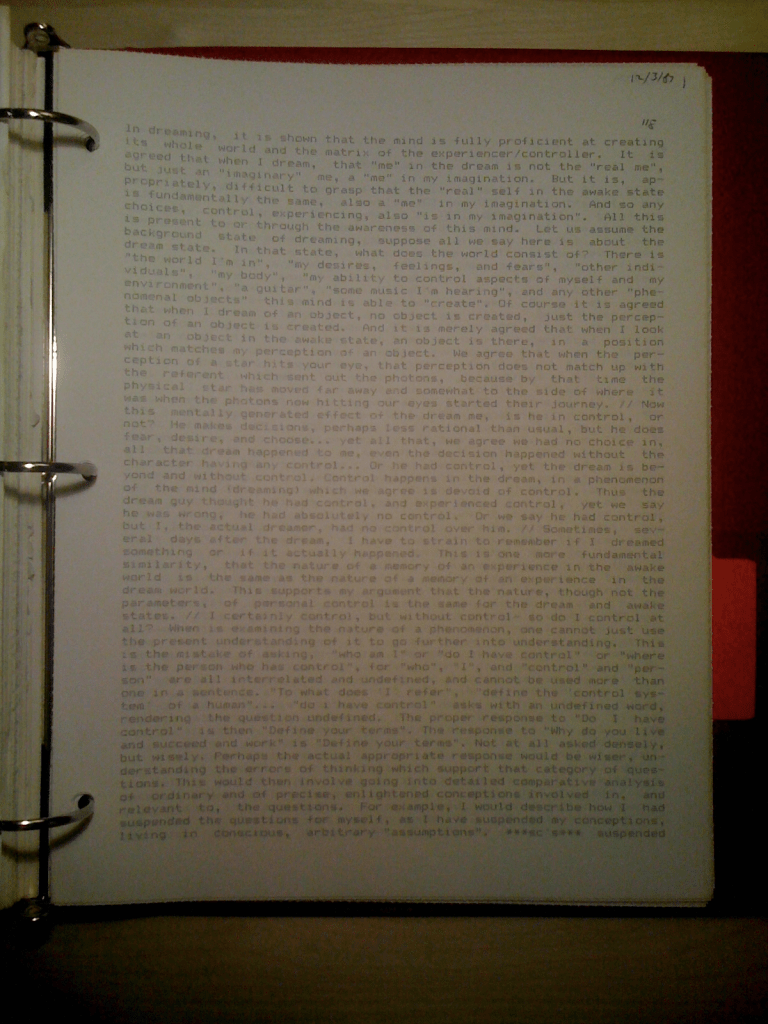 12/3/87 1
116
In dreaming, it is shown that the mind is fully proficient at creating
its whole world and the matrix of the experiencer/controller. It is
agreed that when I dream, that "me" in the dream is not the "real me",
but just an "imaginary" me, a "me" in my imagination. But it is, ap-
propriately, difficult to grasp that the "real" self in the awake state
is fundamentally the same, also a "me" in my imagination. And so any
choices, control, experiencing, also "is in my imagination". All this
is present to or through the awareness of this mind. Let us assume the
background state of dreaming, suppose all we say here is about the
dream state. In that state, what does the world consist of? There is
"the world I'm in", "my desires, feelings, and fears", "other indi-
viduals", "my body", "my ability to control aspects of myself and my
environment", "a guitar", "some music I'm hearing", and any other "phe-
nomenal objects" this mind is able to "create". Of course it is agreed
that when I dream of an object, no object is created, just the percep-
tion of an object is created. And it is merely agreed that when I look
at an object in the awake state, an object is there, in a position
which matches my perception of an object. We agree that when the per-
ception of a star hits your eye, that perception does not match up with
the referent which sent out the photons, because by that time the
physical star has moved far away and somewhat to the side of where it
was when the photons now hitting our eyes started their journey. // Now
this mentally generated effect of the dream me, is he in control, or
not? He makes decisions, perhaps less rational than usual, but he does
fear, desire, and choose... yet all that, we agree we had no choice in,
all that dream happened to me, even the decision happened without the
character having any control... Or he had control, yet the dream is be-
yond and without control. Control happens in the dream, in a phenomenon
of the mind (dreaming) which we agree is devoid of control. Thus the
dream guy thought he had control, and experienced control, yet we say
he was wrong, he had absolutely no control. Or we say he had control,
but I, the actual dreamer, had no control over him. // Sometimes, sev-
eral days after the dream, I have to strain to remember if I dreamed
something or if it actually happened. This is one more fundamental
similarity, that the nature of a memory of an experience in the awake
world is the same as the nature of a memory of an experience in the
dream world. This supports my argument that the nature, though not the
parameters, of personal control is the same for the dream and awake
states. // I certainly control, but without control- so do I control at
all? When is examining the nature of a phenomenon, one cannot just use
the present understanding of it to go further into understanding. This
is the mistake of asking, "who am I" or "do I have control" or "where
is the person who has control", for "who", "I", and "control" and "per-
son" are all interrelated and undefined, and cannot be used more than
one in a sentence. "To what does 'I' refer", "define the 'control sys-
tem' of a human"... "do i have control" asks with an undefined word,
rendering the question undefined. The proper response to "Do I have
control" is then "Define your terms". The response to "Why do you live
and succeed and work" is "Define your terms". Not at all asked densely,
but wisely. Perhaps the actual appropriate response would be wiser, un-
derstanding the errors of thinking which support that category of ques-
tions. This would then involve going into detailed comparative analysis
of ordinary and of precise, enlightened conceptions involved in, and
relevant to, the questions. For example, I would describe how I had
suspended the questions for myself, as I have suspended my conceptions,
living in conscious, arbitrary "assumptions". ***sc's*** suspended